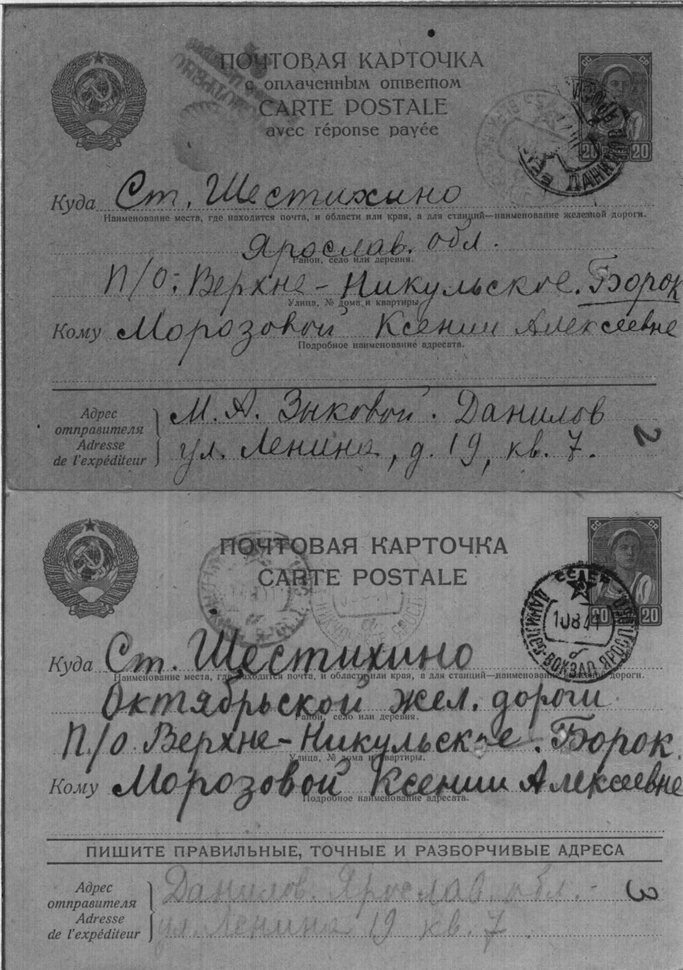 ПОЧТОВАЯ КАРТОЧКА
с оплаченным ответом
CARTE POSTALE
avec réponse payée
20 20
Куда Ст. Шестихино
Наименование места, где находится почта, и области или края, а для станций—наименование железной дороги.
Ярослав. обл.
Район, село или деревня.
П/О: Верхне-Никульское. Борок
Улица, № дома и квартиры
Кому Морозовой Ксении Алексеевне
Подробное наименование адресата.
Адрес отправителя
Adresse de l'expéditeur
М. А. Зыковой. Данилов
ул. Ленина, д. 19, кв. 7.
2
ПОЧТОВАЯ КАРТОЧКА
CARTE POSTALE
СС СР
20 20
СССР
ДАНИЛОВ-ВОКЗАЛ
Куда Ст. Шестихино
Наименование места, где находится почта, и области или края, а для станций—наименование железной дороги.
Октябрьской жел. дороги
Район, село или деревня.
П/О Верхне-Никульское. Борок.
Улица, № дома и квартиры.
Кому Морозовой Ксении Алексеевне
Подробное наименование адресата.
ПИШИТЕ ПРАВИЛЬНЫЕ, ТОЧНЫЕ И РАЗБОРЧИВЫЕ АДРЕСА
Адрес отправителя
Adresse de l'expéditeur
Данилов. Ярослав. обл.-
ул. Ленина 19 кв. 7.
3